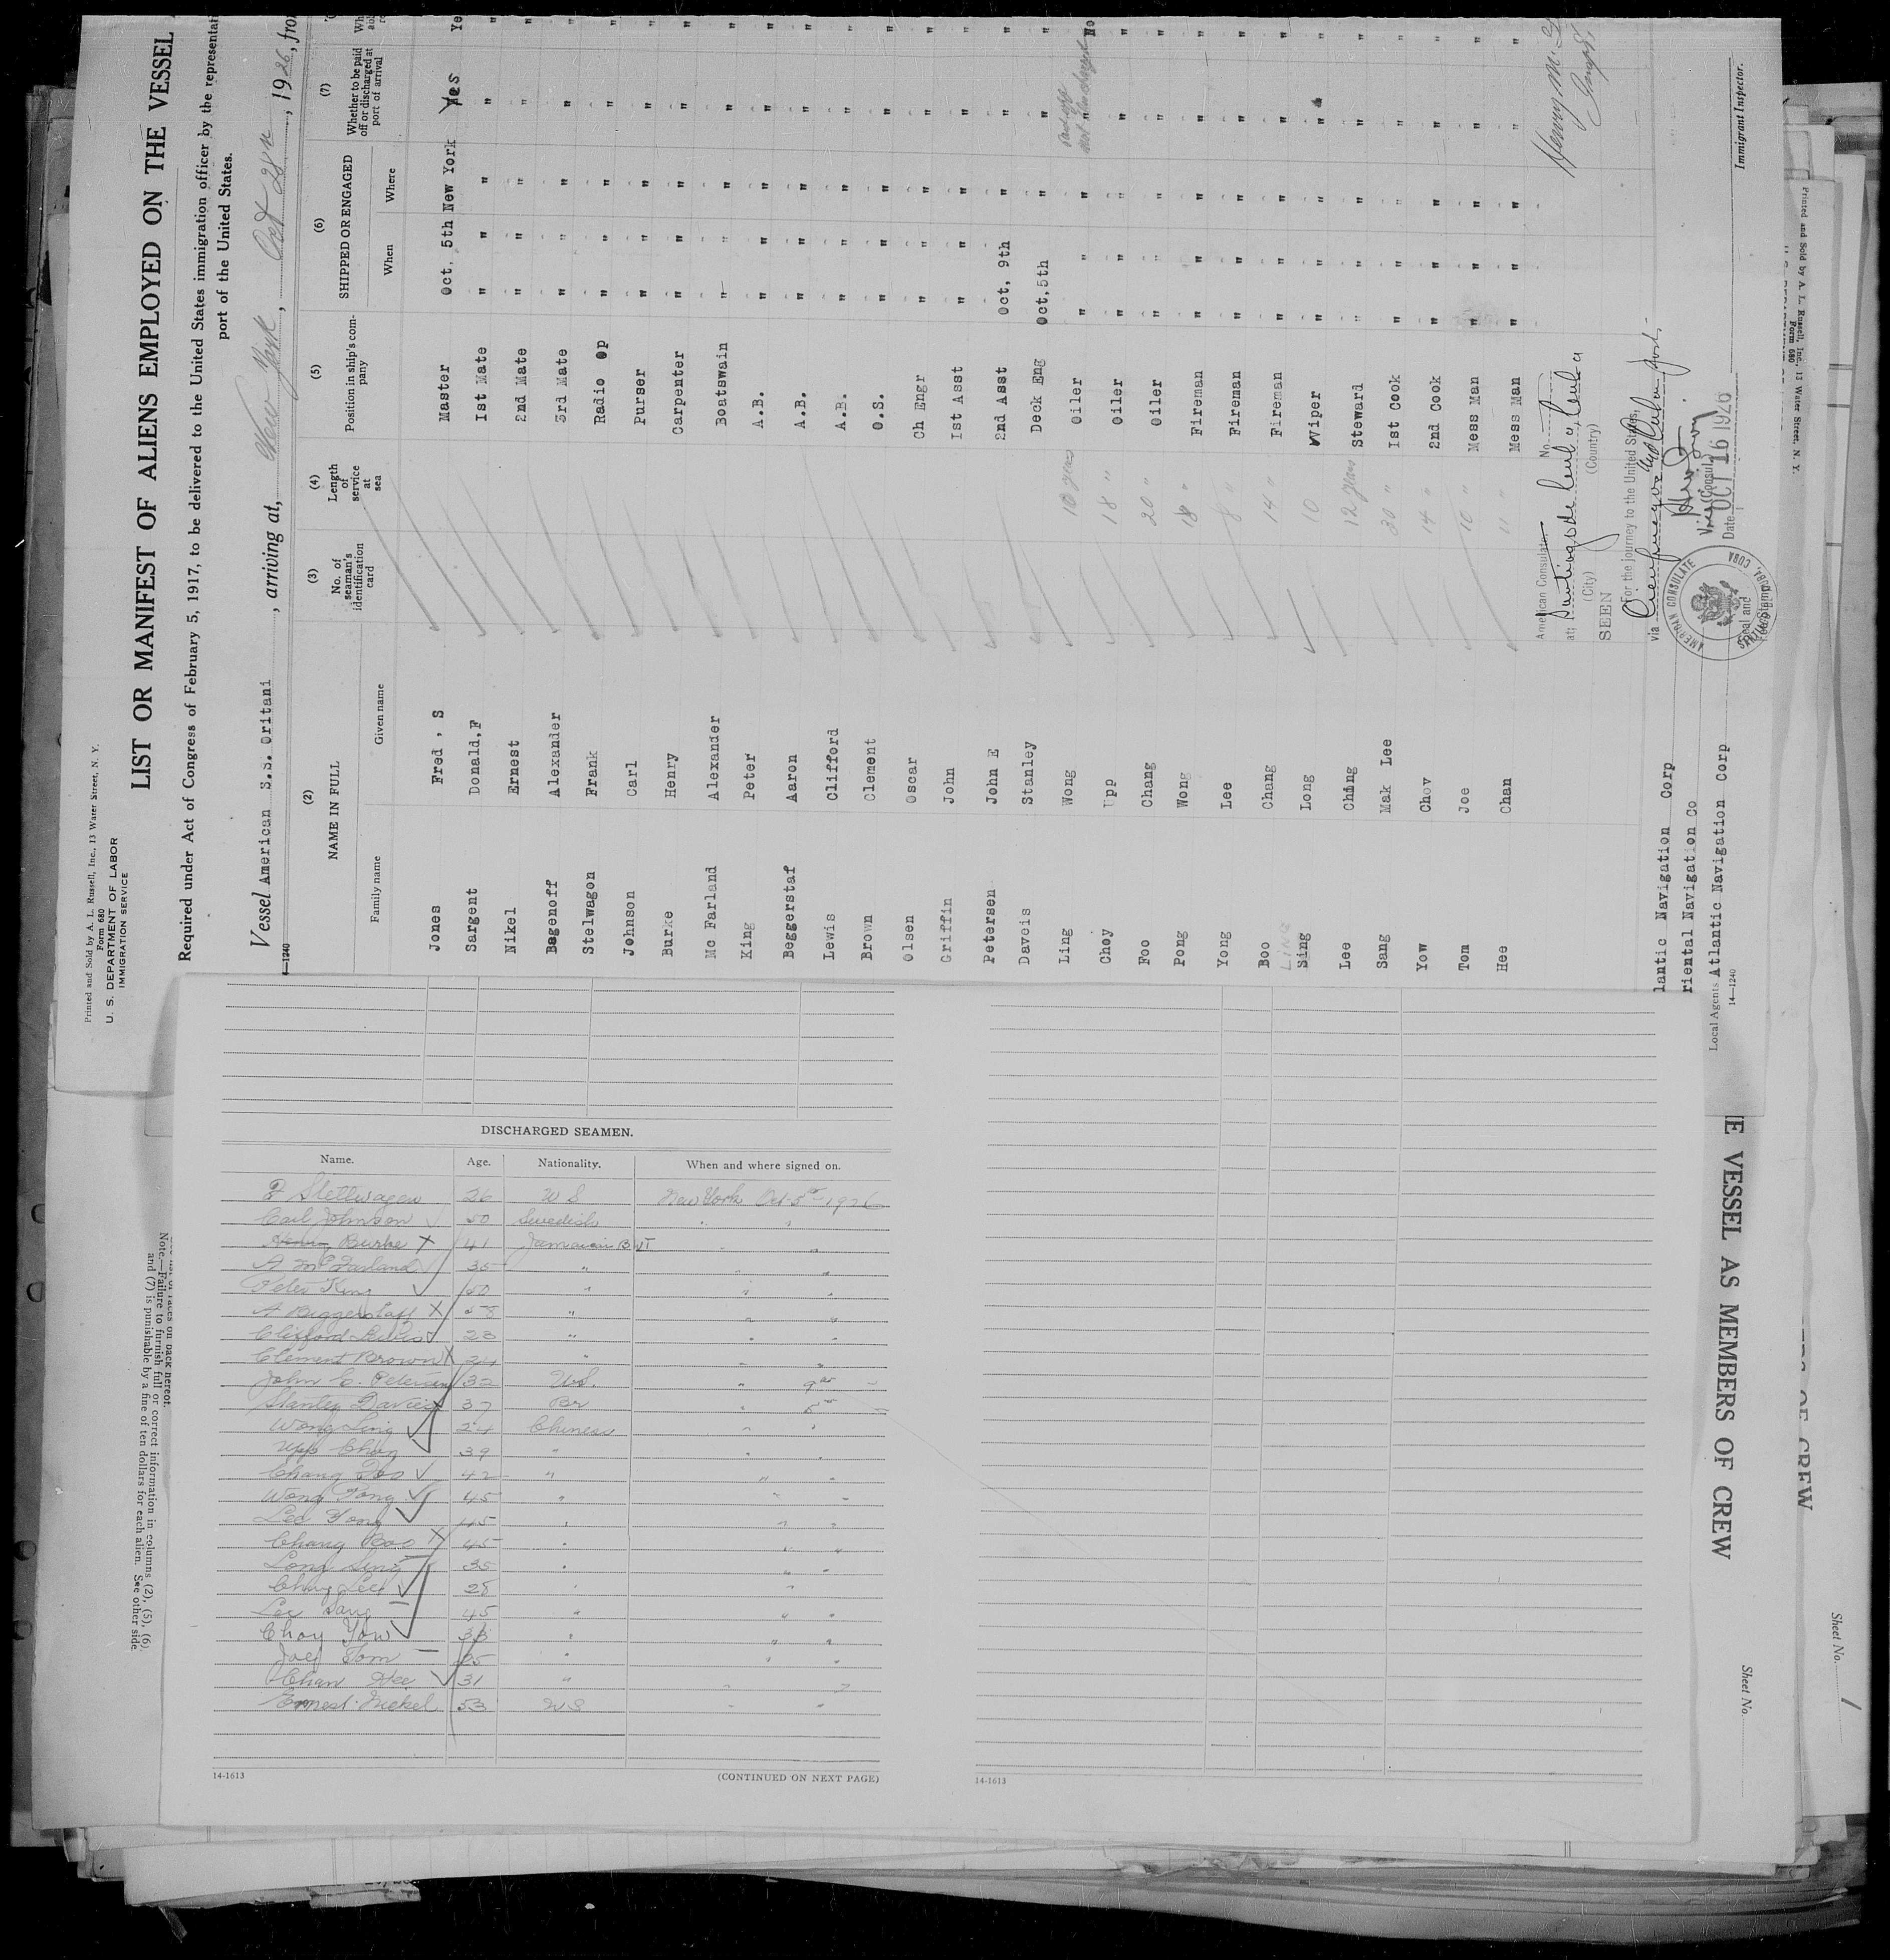 Printed and Sold by A. L. Russell, Inc., 13 Water Street, N. Y.
Form 680
U. S. DEPARTMENT OF LABOR
IMMIGRATION SERVICE
LIST OR MANIFEST OF ALIENS EMPLOYED ON THE VESSEL
Required under Act of Congress of February 5, 1917, to be delivered to the United States immigration officer by the representati
port of the United States.
Vessel American S.S. Oritani, arriving at, New York, Oct 28th, 1926, from
14—1240
(2) (3) (4) (5) (6) (7)
NAME IN FULL No. of seaman's identification card Length of service at sea Position in ship's company SHIPPED OR ENGAGED Whether to be paid off or discharged at port of arrival
Family name Given name When Where
Jones Fred, S Master Oct. 5th New York Yes Ye
Sargent Donald,F 1st Mate " " " " "
Nikel Ernest 2nd Mate " " " " "
Bagenoff Alexander 3rd Mate " " " " "
Stelwagon Frank Radio Op " " " " "
Johnson Carl Purser " " " " "
Burke Henry Carpenter " " " " "
Mc Farland Alexander Boatswain " " " " "
King Peter A.B. " " " " "
Beggerstaf Aaron A.B. " " " " "
Lewis Clifford A.B. " " " " "
Brown Clement O.S. " " " " "
Olsen Oscar Ch Engr " " " " "
Griffin John 1st Asst " " " " "
Petersen John E 2nd Asst Oct, 9th " " "
Daveis Stanley Deck Eng Oct,5th " " "
Ling Wong 10 years Oiler " " " " No
Choy Upp 18 " Oiler " " " " "
Foo Chang 20 " Oiler " " " " "
Pong Wong 18 " Fireman " " " " "
Yong Lee 8 " Fireman " " " " "
Boo Chang 14 " Fireman " " " " "
LING
Sing Long 10 Wiper " " " " "
Lee Ching 12 years Steward " " " " "
Sang Mak Lee 30 " 1st Cook " " " " "
Yow Chov 14 " 2nd Cook " " " " "
Tom Joe 10 " Mess Man " " " " "
Hee Chan 11 " Mess Man " " " " "
American Consulate No.
at; Santiago de Cuba, Cuba
(City) (Country)
SEEN
For the journey to the United States,
via Cienfuegos and Cuban ports
Vice (Consul)
Date OCT 16 1926
Seal and
Fee Stamp
AMERICAN CONSULATE
SANTIAGO DE CUBA, CUBA
Henry M.
lantic Navigation Corp
riental Navigation Co
Local Agents Atlantic Navigation Corp
14—1240
Immigrant Inspector.
Printed and Sold by A. L. Russell, Inc., 13 Water Street, N. Y.
Form 680
DISCHARGED SEAMEN.
Name. Age. Nationality. When and where signed on.
F Stellwagen 26 U S New York Oct 5th 1926
Carl Johnson 50 Swedish " "
Henry Burke X 41 Jamaican B.W.I " "
A McFarland 35 " " "
Peter King 50 " " "
A Biggerstaff X 58 " " "
Clifford Lewis 23 " " "
Clement Brown X 24 " " "
John E. Petersen 32 U.S. " 9th
Stanley Davies 37 Br " 5th
Wong Ling 24 Chinese " "
Upp Choy 39 " " "
Chang Foo 42 " " "
Wong Pong 45 " " "
Lee Yong 45 " " "
Chang Boo X 45 " " "
Long Ling 35 " " "
Ching Lee 28 " "
Lee Sang 45 " " "
Choy Yow 33 " " "
Joe Tom 25 " " "
Chan Hee 31 " " "
Ernest Nickel 53 U S " "
14-1613
(CONTINUED ON NEXT PAGE)
14-1613
Note.—Failure to furnish full or correct information in columns (2), (5), (6),
and (7) is punishable by a fine of ten dollars for each alien. See other side.
E VESSEL AS MEMBERS OF CREW
Sheet No.
OF CREW
Sheet No. 1